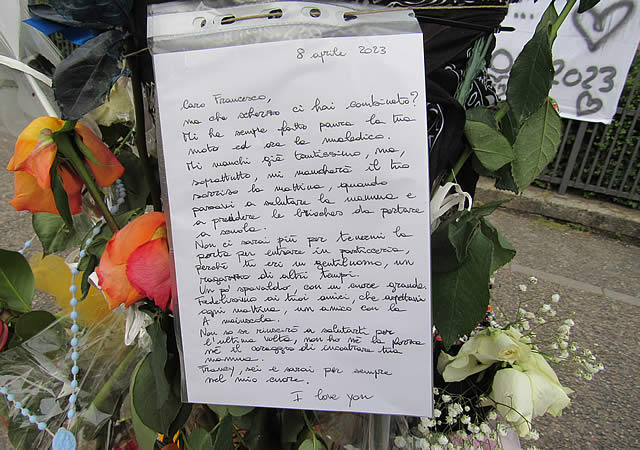 8 aprile 2023
Caro Francesco,
ma che scherzo ci hai combinato?
Mi ha sempre fatto paura la tua
moto ed ora la maledico.
Mi manchi già tantissimo, ma,
soprattutto, mi mancherà il tuo
sorriso la mattina, quando
passavi a salutare la mamma e
a prendere le brioches da portare
a scuola.
Non ci sarai più per tenermi la
porta per entrare in pasticceria
perché tu eri un gentiluomo, un
ragazzo di altri tempi.
Un po' spavaldo, con un cuore grande.
Fedelissimo ai tuoi amici, che aspettavi
ogni mattina, un amico con la
A maiuscola.
Non so se riuscirò a salutarti per
l'ultima volta, non ho né la forza
né il coraggio di incontrare tua
mamma.
sei e sarai per sempre
nel mio cuore.
I love you
2023